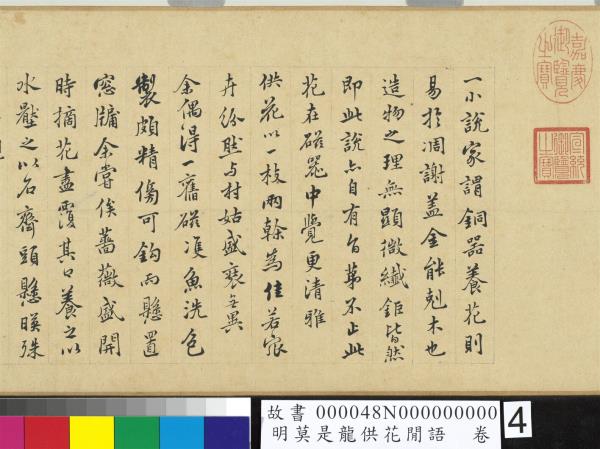 一小說家謂銅器養花則
易於凋謝蓋金能剋木也
造物之理無顯微纖鉅皆然
即此說亦自有旨第不止此
花在磁器中覺更清雅
供花以一枝兩榦為佳若叢
卉紛然与村姑盛裝無異
余偶得一舊磁雙魚洗色
製頗精傷可鈎而懸置
窓牖余嘗俟薔薇盛開
時摘花盡覆其口養之以
水壓之以石齋頭懸暎殊
嘉慶御覽之寶
宣統御覽之寶
故書 000048N000000000
明莫是龍供花閒語 卷
4